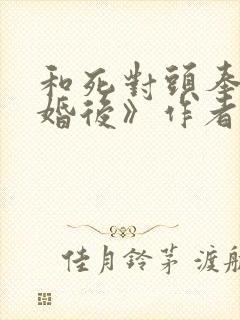 和死對頭奉
婚後》作者
佳月鈴茅 渡航